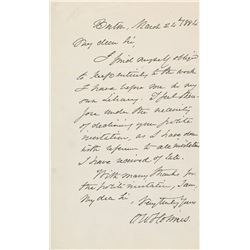 Boston, March 24th 1884
My dear Sir,
I find myself obliged
to keep entirely to the work
I have before me in my
own Library. I feel there
fore under the necessity
of declining your polite
invitation, as I have done
with reference to all invitations
I have received of late.
With many thanks for
the polite invitation, I am
My dear Sir, Very truly Yours
O W Holmes.